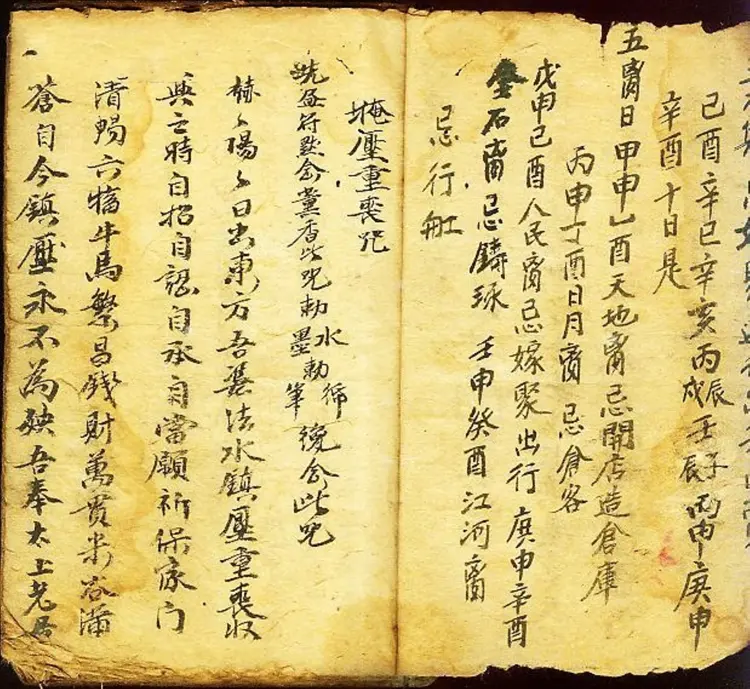 己酉辛巳辛亥丙辰戌壬子辰丙申庚申
辛酉十日是
五离日甲申乙酉天地离忌開店造倉庫
丙申丁酉日月离忌倉客
戊申己酉人民离忌嫁聚出行庚申辛酉
金石离忌鑄琢壬申癸酉江河离
忌行舡
掩壓重喪咒
符默念薰香此咒勅水勅墨筆念此咒
赫々陽々日出東方吾法水鎮壓重喪収
之時自招自認自承自當願祈保家门
清賜六牛馬繁昌錢財萬貫米谷满
蒼自今鎮壓永不為殃吾奉太上老君